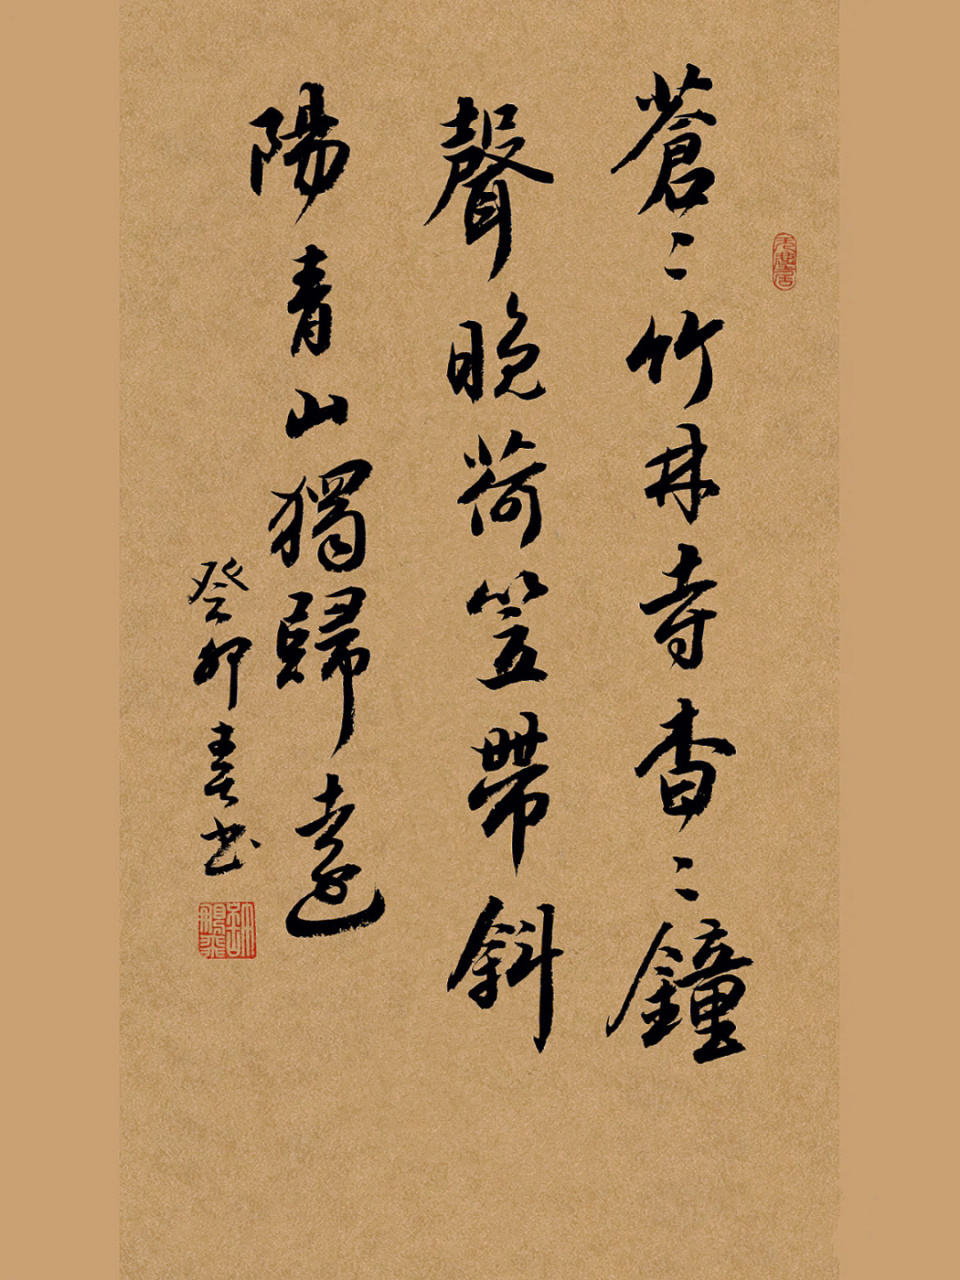 蒼〻竹林寺杳〻鐘
聲晚荷笠帶斜
陽青山獨歸遠
癸卯春書